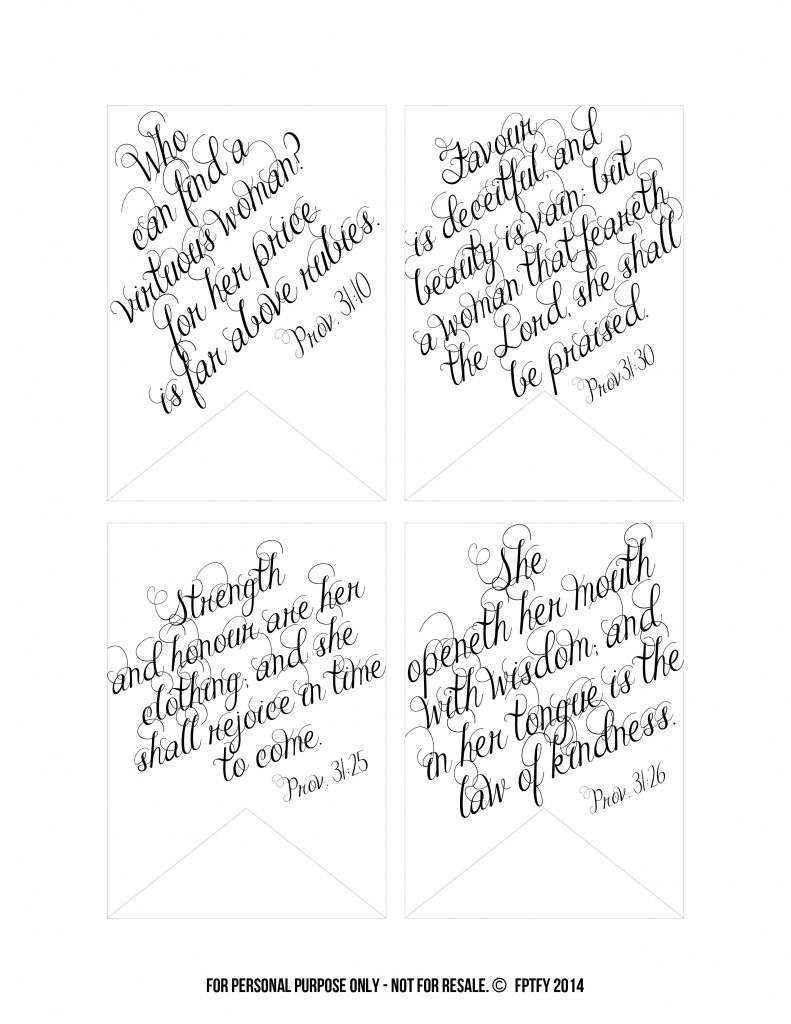 Who
can find a
virtuous woman?
for her price
is far above rubies.
Prov. 31:10
Favour
is deceitful, and
beauty is vain: but
a woman that feareth
the Lord, she shall
be praised.
Prov 31:30
Strength
and honour are her
clothing; and she
shall rejoice in time
to come.
Prov. 31:25
She
openeth her mouth
with wisdom; and
in her tongue is the
law of kindness.
Prov. 31:26
FOR PERSONAL PURPOSE ONLY - NOT FOR RESALE. © FPTFY 2014